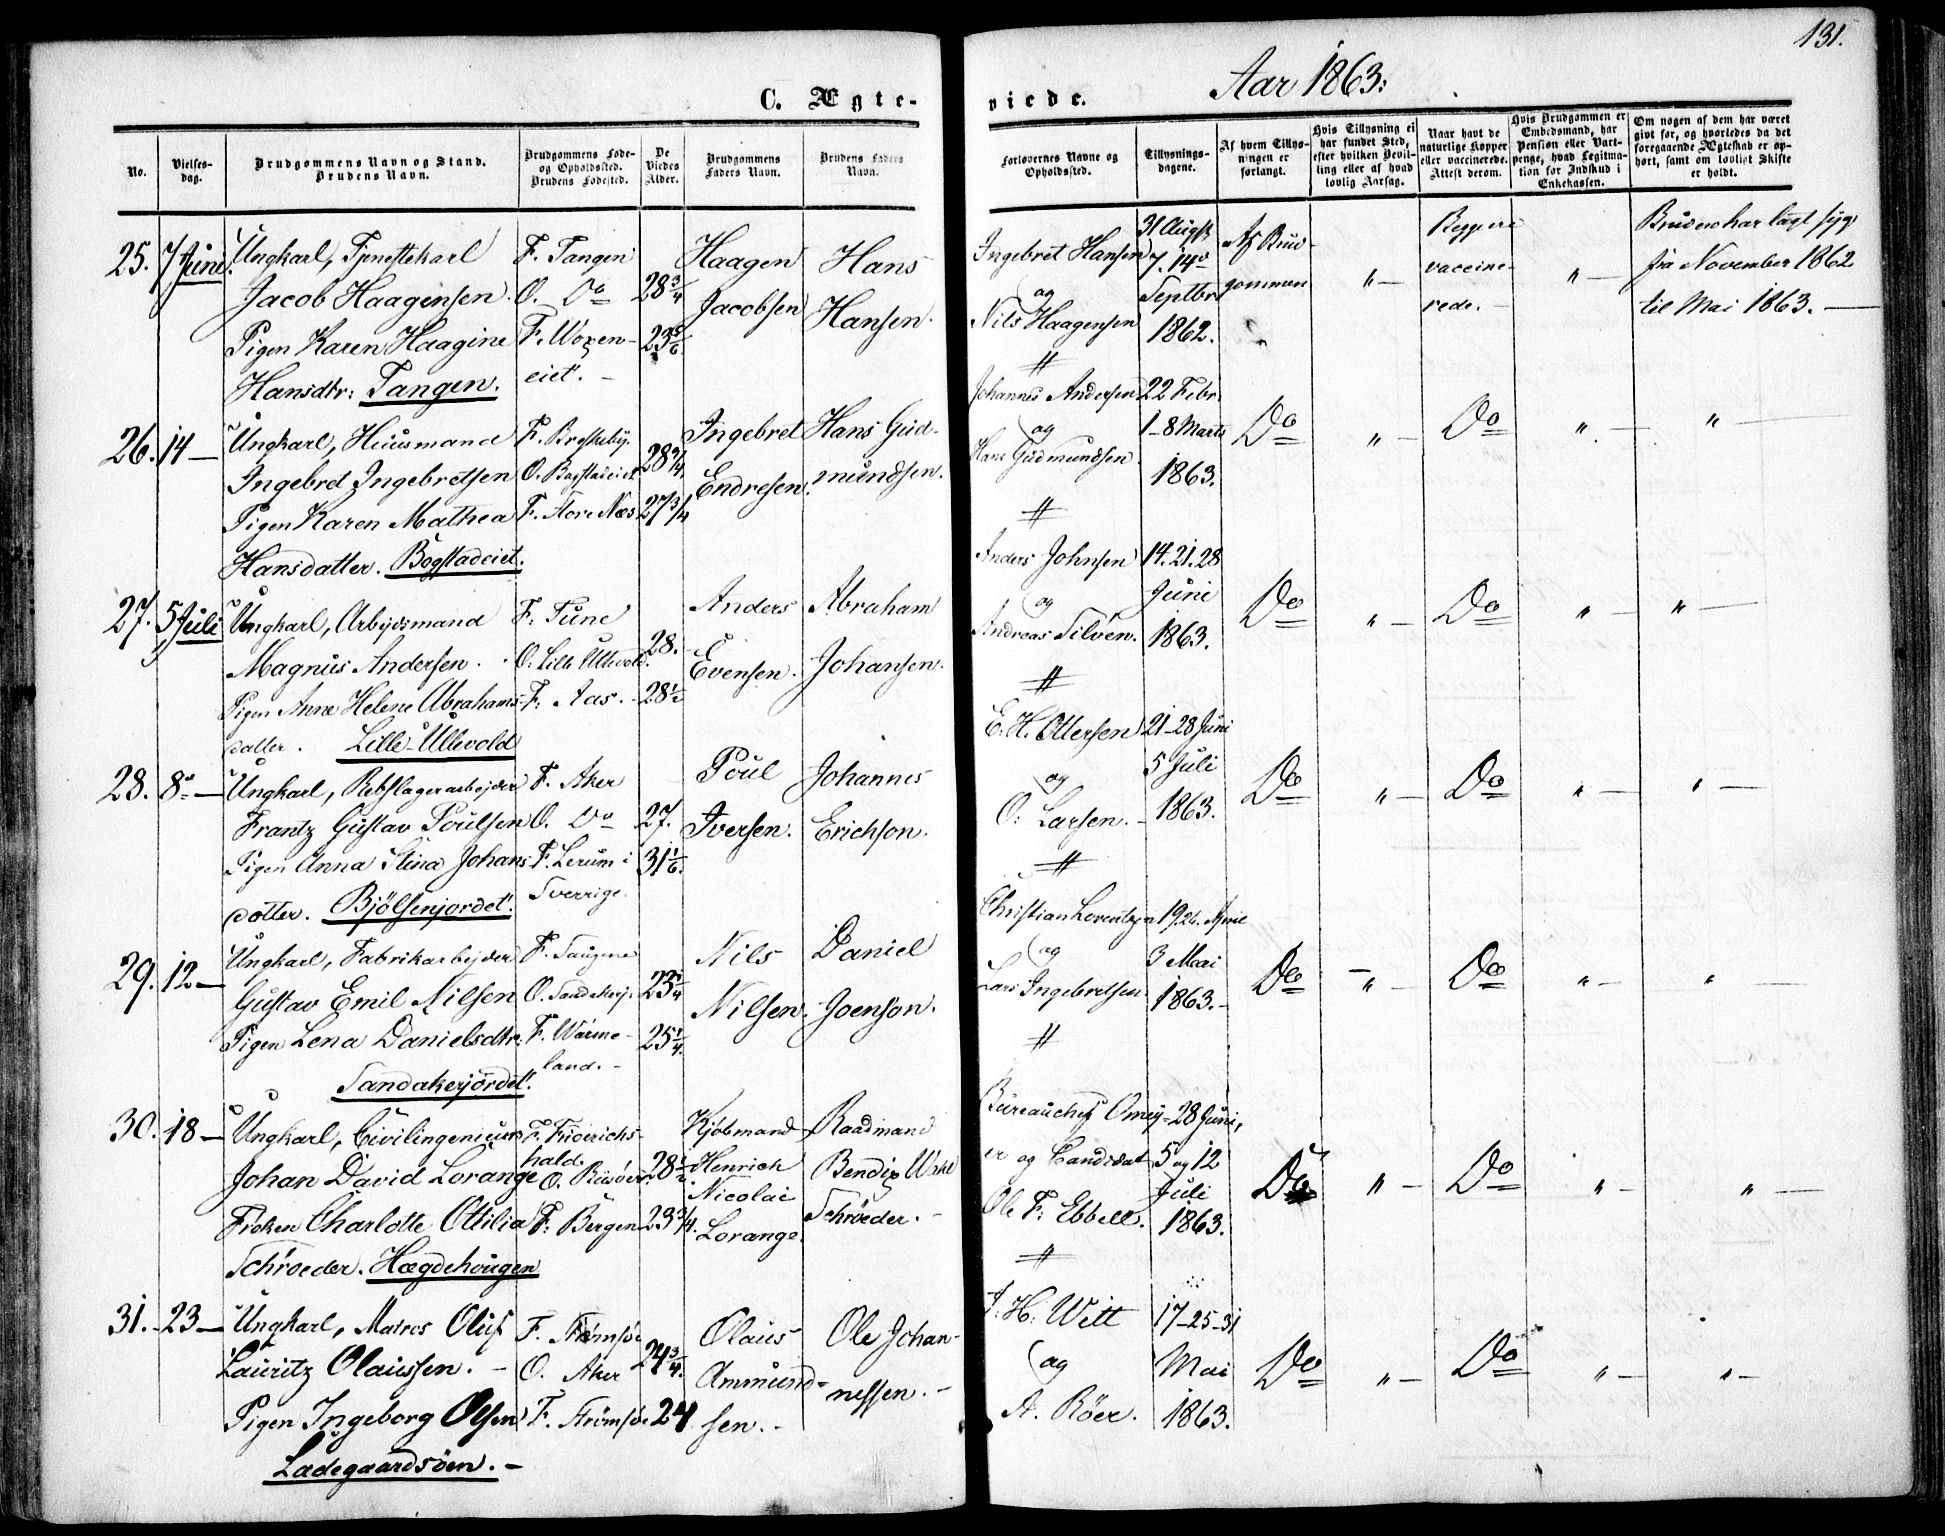 131.
C. Ægte-
viede.
Aar 1863.
No.
Vielses-
dag.
Brudgommens Navn og Stand.
Brudens Navn.
Brudgommens Føde-
og Opholdssted.
Brudens Fødested.
De
Viedes
Alder.
Brudgommens
Faders Navn.
Brudens Faders
Navn.
Forlovernes Navne og
Opholdssted.
Tillysnings-
dagene.
Af hvem Tillys-
ningen er
forlangt.
Hvis Tillysning ei
har fundet Sted,
efter hvilken Bevil-
ling eller af hvad
lovlig Aarsag.
Naar havt de
naturlige Kopper
eller vaccinerede.
Attest derom.
Hvis Brudgommen er
Embedsmand, har
Pension eller Vart-
penge, hvad Legitima-
tion for Indskud i
Enkekassen.
Om nogen af dem har været
gift før, og hvorledes da det
foregaaende Ægteskab er op-
hørt, samt om lovligt Skifte
er holdt.
25. 7 Juni. Ungkarl, Tjenestekarl
Jacob Haagensen
Pigen Karen Haagine
Hansdtr: Tangen.
F. Tangen
O. Do
F. Woxen-
eiet. -
28 3/4
23 5/6
Haagen
Jacobsen
Hans
Hansen.
Ingebret Hansen
og
Nils Haagensen
#
31 Augst
7. 14de
Septbr
1862.
Af Brud-
gommen
" -
Begge
vaccine-
rede. -
" -
Bruden har lagt syg
fra November 1862
til Mai 1863. -
26. 14 - Ungkarl, Huusmand
Ingebret Ingebretsen
Pigen Karen Mathea
Hansdatter. Bogstadeiet.
F. Brejskeby.
O. Bogstadeiet
F. Store Næs
28 3/4
27 3/4
Ingebret
Endresen.
Hans Gud-
mundsen.
Johannes Andersen
og
Hans Gudmundsen
#
22 Febr
1-8 Marts
1863.
Do " - Do " - " -
27. 5 Juli Ungkarl, Arbejdsmand
Magnus Andersen.
Pigen Anne Helene Abrahams-
datter. Lille-Ullevold
F. Tune
O. Lille Ullevold.
F. Aas. -
28.
28 1/2
Anders
Evensen.
Abraham
Johansen.
Anders Johnsen
og
Andreas Silven.
#
14. 21. 28
Juni
1863.
Do " - Do " - " -
28. 8de - Ungkarl, Rebslagerarbejder
Frantz Gustav Poulsen
Pigen Anna Stina Johans
dotter. Bjølsenjordet.
F. Aker
O. Do
F. Lerum i
Sverrige.
27.
31 1/6.
Poul
Iversen.
Johannes
Erichson.
E. H. Ottersen
og
O. Larsen. -
#
21-28 Juni
5 Juli
1863.
Do " - Do " - " -
29. 12 - Ungkarl, Fabrikarbejder
Gustav Emil Nilsen
Pigen Lena Danielsdtr:
Sandakerjordet.
F. Saugene
O. Sandakerj.
F. Wärme-
land. -
23 1/4
25 1/4.
Nils
Nilsen.
Daniel
Joenson.
Christian Lorentzen
og
Lars Ingebretsen
#
19. 26. April
3 Mai
1863. -
Do " - Do " - "
30. 18 - Ungkarl, Civilingenieur
Johan David Lorange
Frøken Charlotte Ottilia
Schrøeder. Hægdehougen
F. Friderichs-
hald
O. Risøer
F. Bergen
28 1/2.
23 3/4.
Kjøbmand
Henrich
Nicolai
Lorange.
Raadmand
Bendix
Schrøeder. -
Bureauchef Omey-
er og Candidat
Ole F. Ebbell.
#
28 Juni,
5 og 12
Juli
1863.
Do " - Do " - " -
31. 23 - Ungkarl, Matros Oluf
Lauritz Olaussen. -
Pigen Ingeborg Olsen
Ladegaardsöen. -
F. Strømsø
O. Aker
F. Strømsø
24 3/4.
24
Olaus
Ammund-
sen. -
Ole Johan-
nessen. -
J. H. Witt
og
A. Röer.
17-25-31
Mai
1863.
Do " - Do " - " -